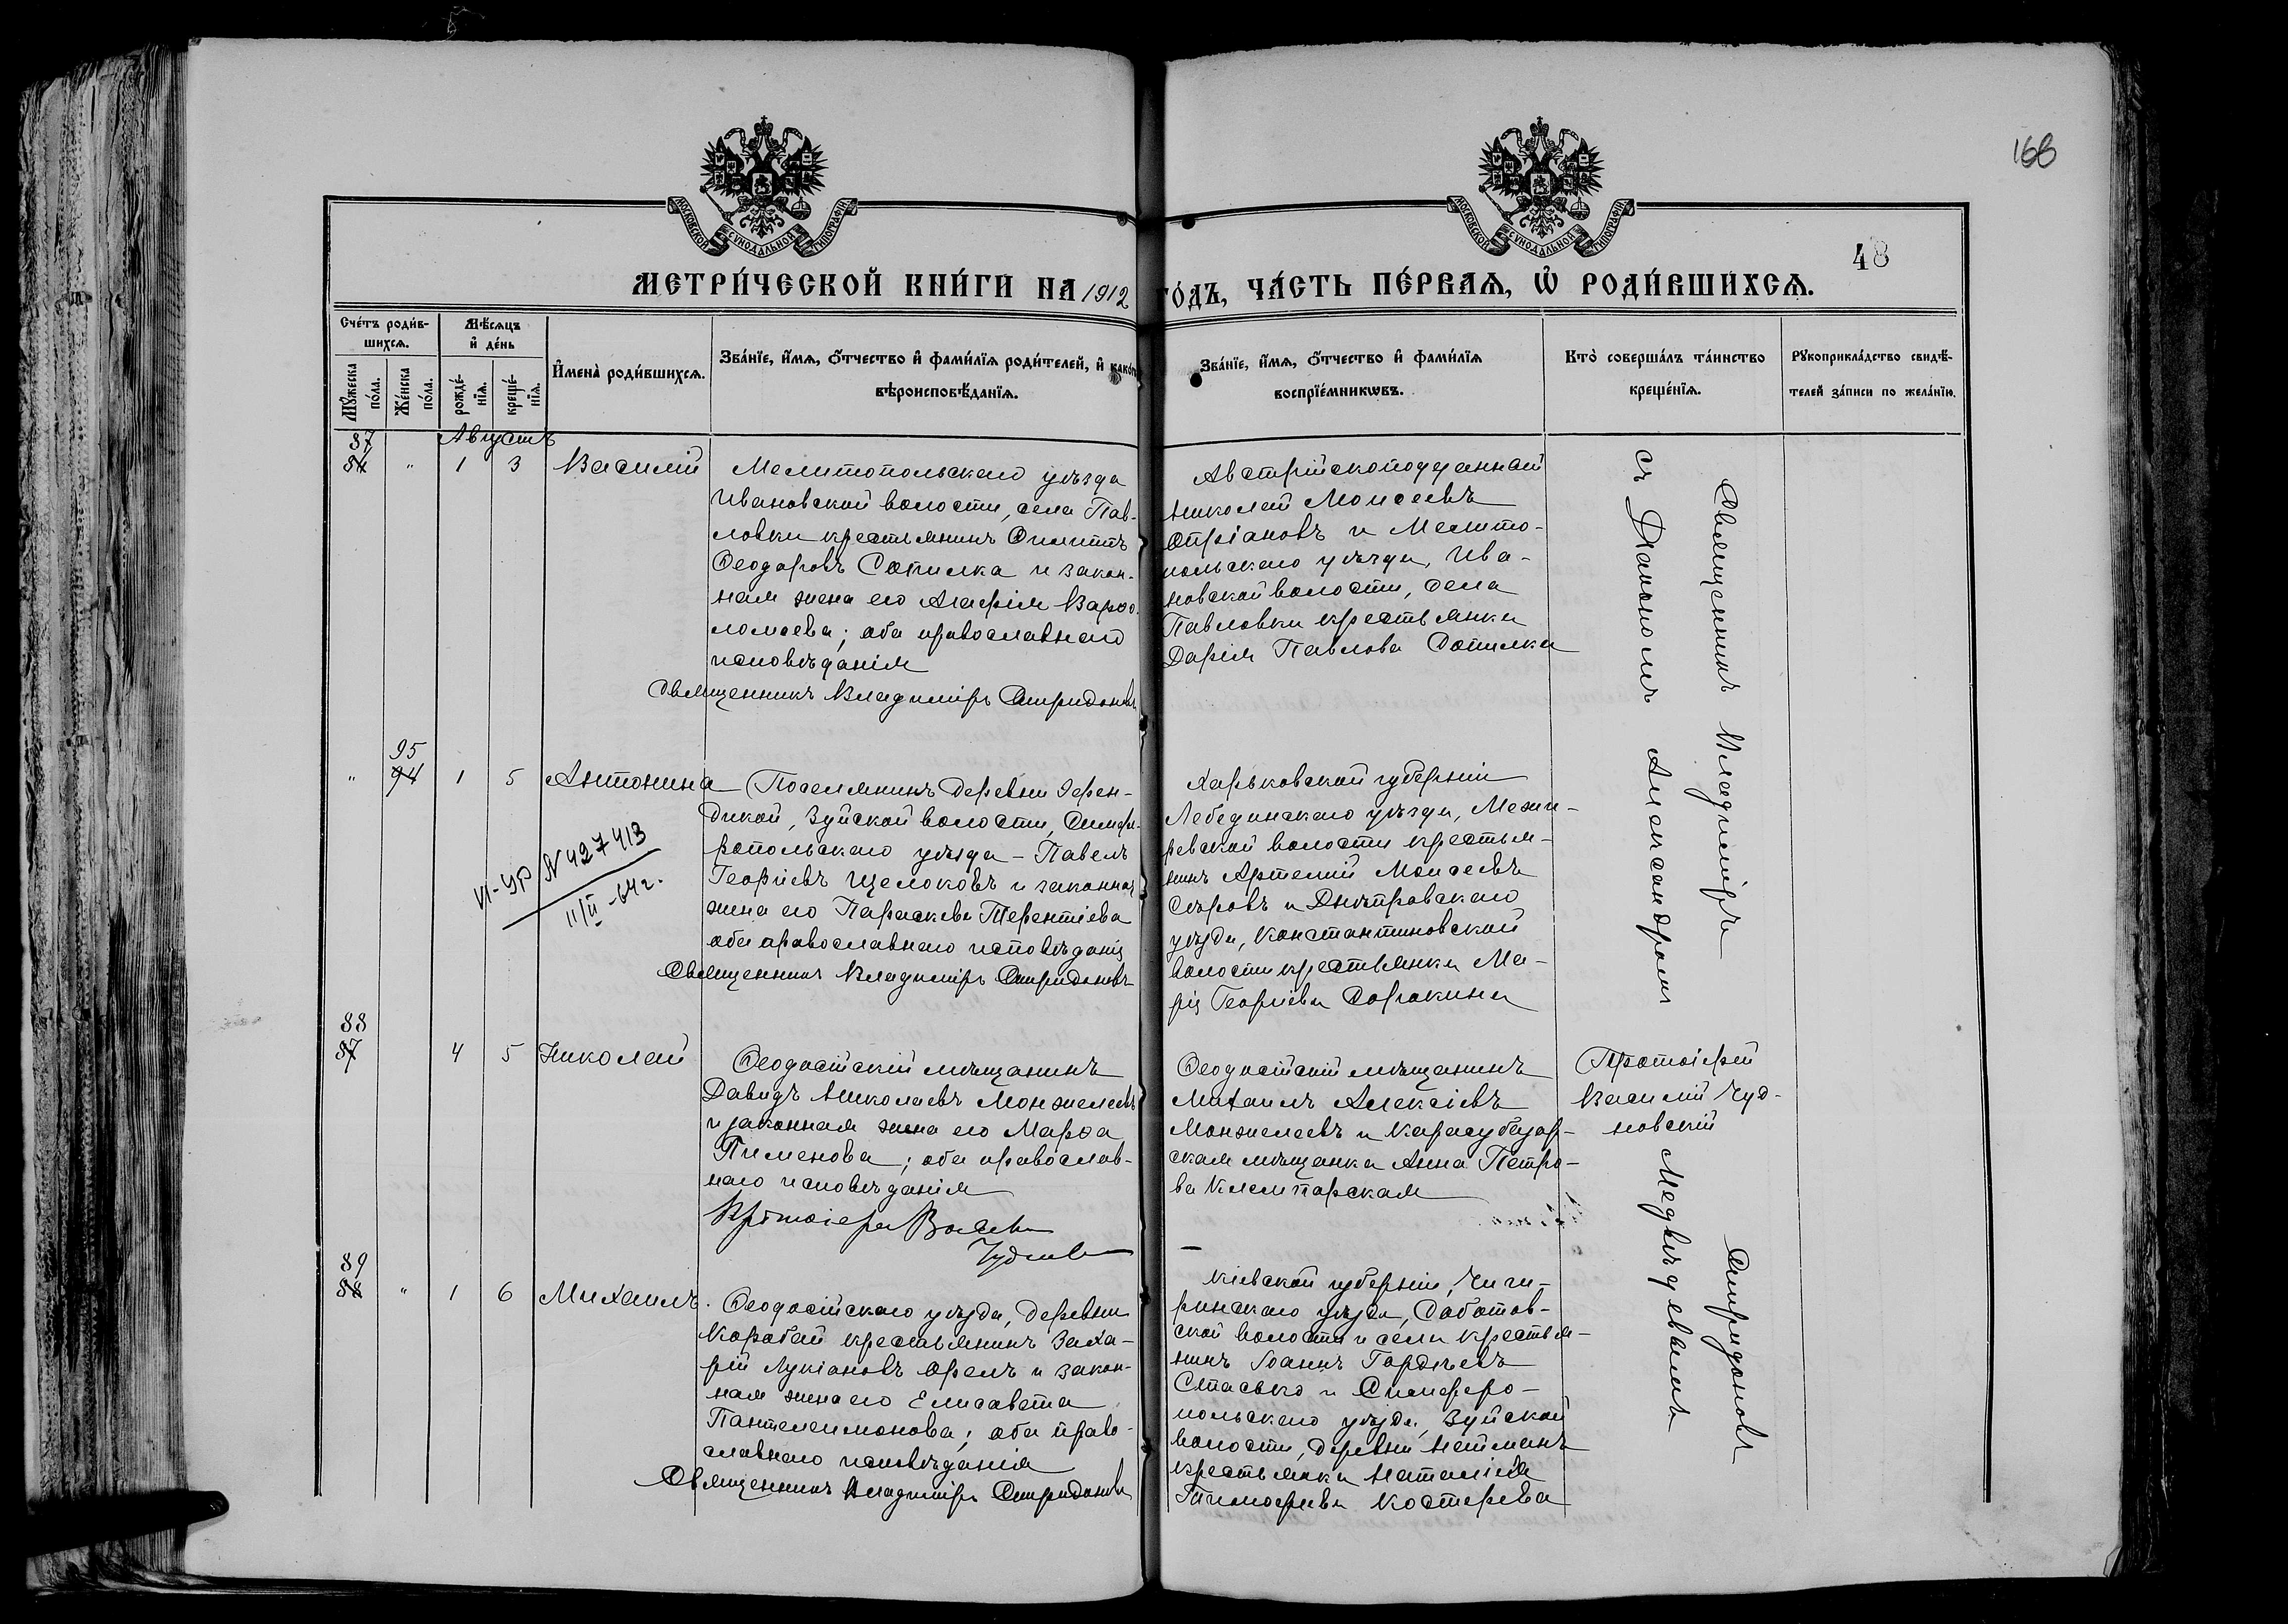 168
МОСКОВСКОЙ СѴНОДАЛЬНОЙ ТИПОГРАФІИ
МОСКОВСКОЙ СѴНОДАЛЬНОЙ ТИПОГРАФІИ
48
МЕТРИ́ЧЕСКОЙ КНИ́ГИ НА 1912 ГО́ДЪ, ЧА́СТЬ ПЕ́РВАЯ, Ѡ҆ РОДИ́ВШИХСЯ.
Сче́тъ роди́в-
шихся.
Мѣ́сяцъ
и҆ де́нь
Мꙋ́жеска
по́ла.
Же́нска
по́ла.
рожде́-
нїя.
креще́-
нїя.
И҆мена̀ роди́вшихся.
Зва́нїе, и҆́мя, ѻ҆́тчество и҆ фами́лїя роди́телей, и҆ како́гѡ
вѣроисповѣ́данїя.
Зва́нїе, и҆́мя, ѻ҆́тчество и҆ фами́лїя
воспрїе́мникѡвъ.
Кто̀ соверша́лъ та́инство
креще́нїя.
Рꙋкоприкла́дство свидѣ́-
телей за́писи по жела́нїю.
Августъ
87
"
1
3
Василій
Мелитопольскаго уѣзда
Ивановской волости, села Пав-
ловки крестьянинъ Филиппъ
Ѳеодоровъ Сопилка и закон-
ная жена его Агафія Варѳо-
ломеева; оба православнаго
исповѣданія
Священникъ Владиміръ Спиридоновъ
Австрійскоподданный
Николай Моисеевъ
Опріановъ и Мелито-
польскаго уѣзда, Ива-
новской волости, села
Павловки крестьянка
Дарія Павлова Сопилка
Священникъ Владиміръ Спиридоновъ
съ Діакономъ Александромъ Медвѣдевымъ
"
95
94
1
5
Антонина
И-УР N 427413
11/II-64г.
Поселянинъ деревни Эфен-
дикой, Зуйской волости, Симфе-
ропольскаго уѣзда - Павелъ
Георгіевъ Щелоковъ и законная
жена его Параскева Терентіева
оба православнаго исповѣданія
Священникъ Владиміръ Спиридоновъ
Харьковской губерніи
Лебединскаго уѣзда, Межи-
ревской волости крестья-
нинъ Артемий Моисеевъ
Сѣровъ и Днѣпровскаго
уѣзда, Константиновской
волости крестьянка Ма-
рія Георгіева Сорокина
88
87
4
5
Николай
Ѳеодосійскій мѣщанинъ
Давидъ Николаевъ Монжелеевъ
и законная жена его Марѳа
Пименова; оба православ-
наго исповѣданія
Протоіерей Василій
Чудновскій
Ѳеодосійскій мѣщанинъ
Михаилъ Алексіевъ
Монжелеевъ и Карасубазар-
ская мѣщанка Анна Петро-
ва Клемпарская
Протоіерей
Василій Чуд-
новскій
89
88
"
1
6
Михаилъ.
Ѳеодосійскаго уѣзда, деревни
Коробай крестьянинъ Заха-
рій Лукіановъ Орелъ и закон-
ная жена его Елисавета
Пантелеимонова; оба право-
славнаго исповѣданія
Священникъ Владиміръ Спиридоновъ
Кіевской губерніи, Чиги-
ринскаго уѣзда, Соботов-
ской волости и села крестья-
нинъ Іоаннъ Гордѣевъ
Стасько и Симферо-
польскаго уѣзда, Зуйской
волости, деревни Нейманъ
крестьянка Наталія
Тимоѳеева Костерева